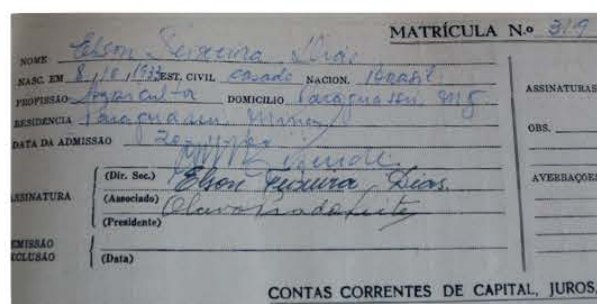 MATRÍCULA N.o 319
NOME Elson Teixeira Dias
NASC. EM 8/10/1933 EST. CIVIL casado NACION. Brasil
PROFISSÃO Agricultor DOMICILIO Paraguassu MG
RESIDENCIA Paraguassu Minas
DATA DA ADMISSÃO
(Dir. Sec.)
ASSINATURA (Associado) Elson Teixeira Dias.
(Presidente)
EMISSÃO
XCLUSÃO (Data)
ASSINATURAS
OBS.
AVERBAÇÕES
CONTAS CORRENTES DE CAPITAL, JUROS,